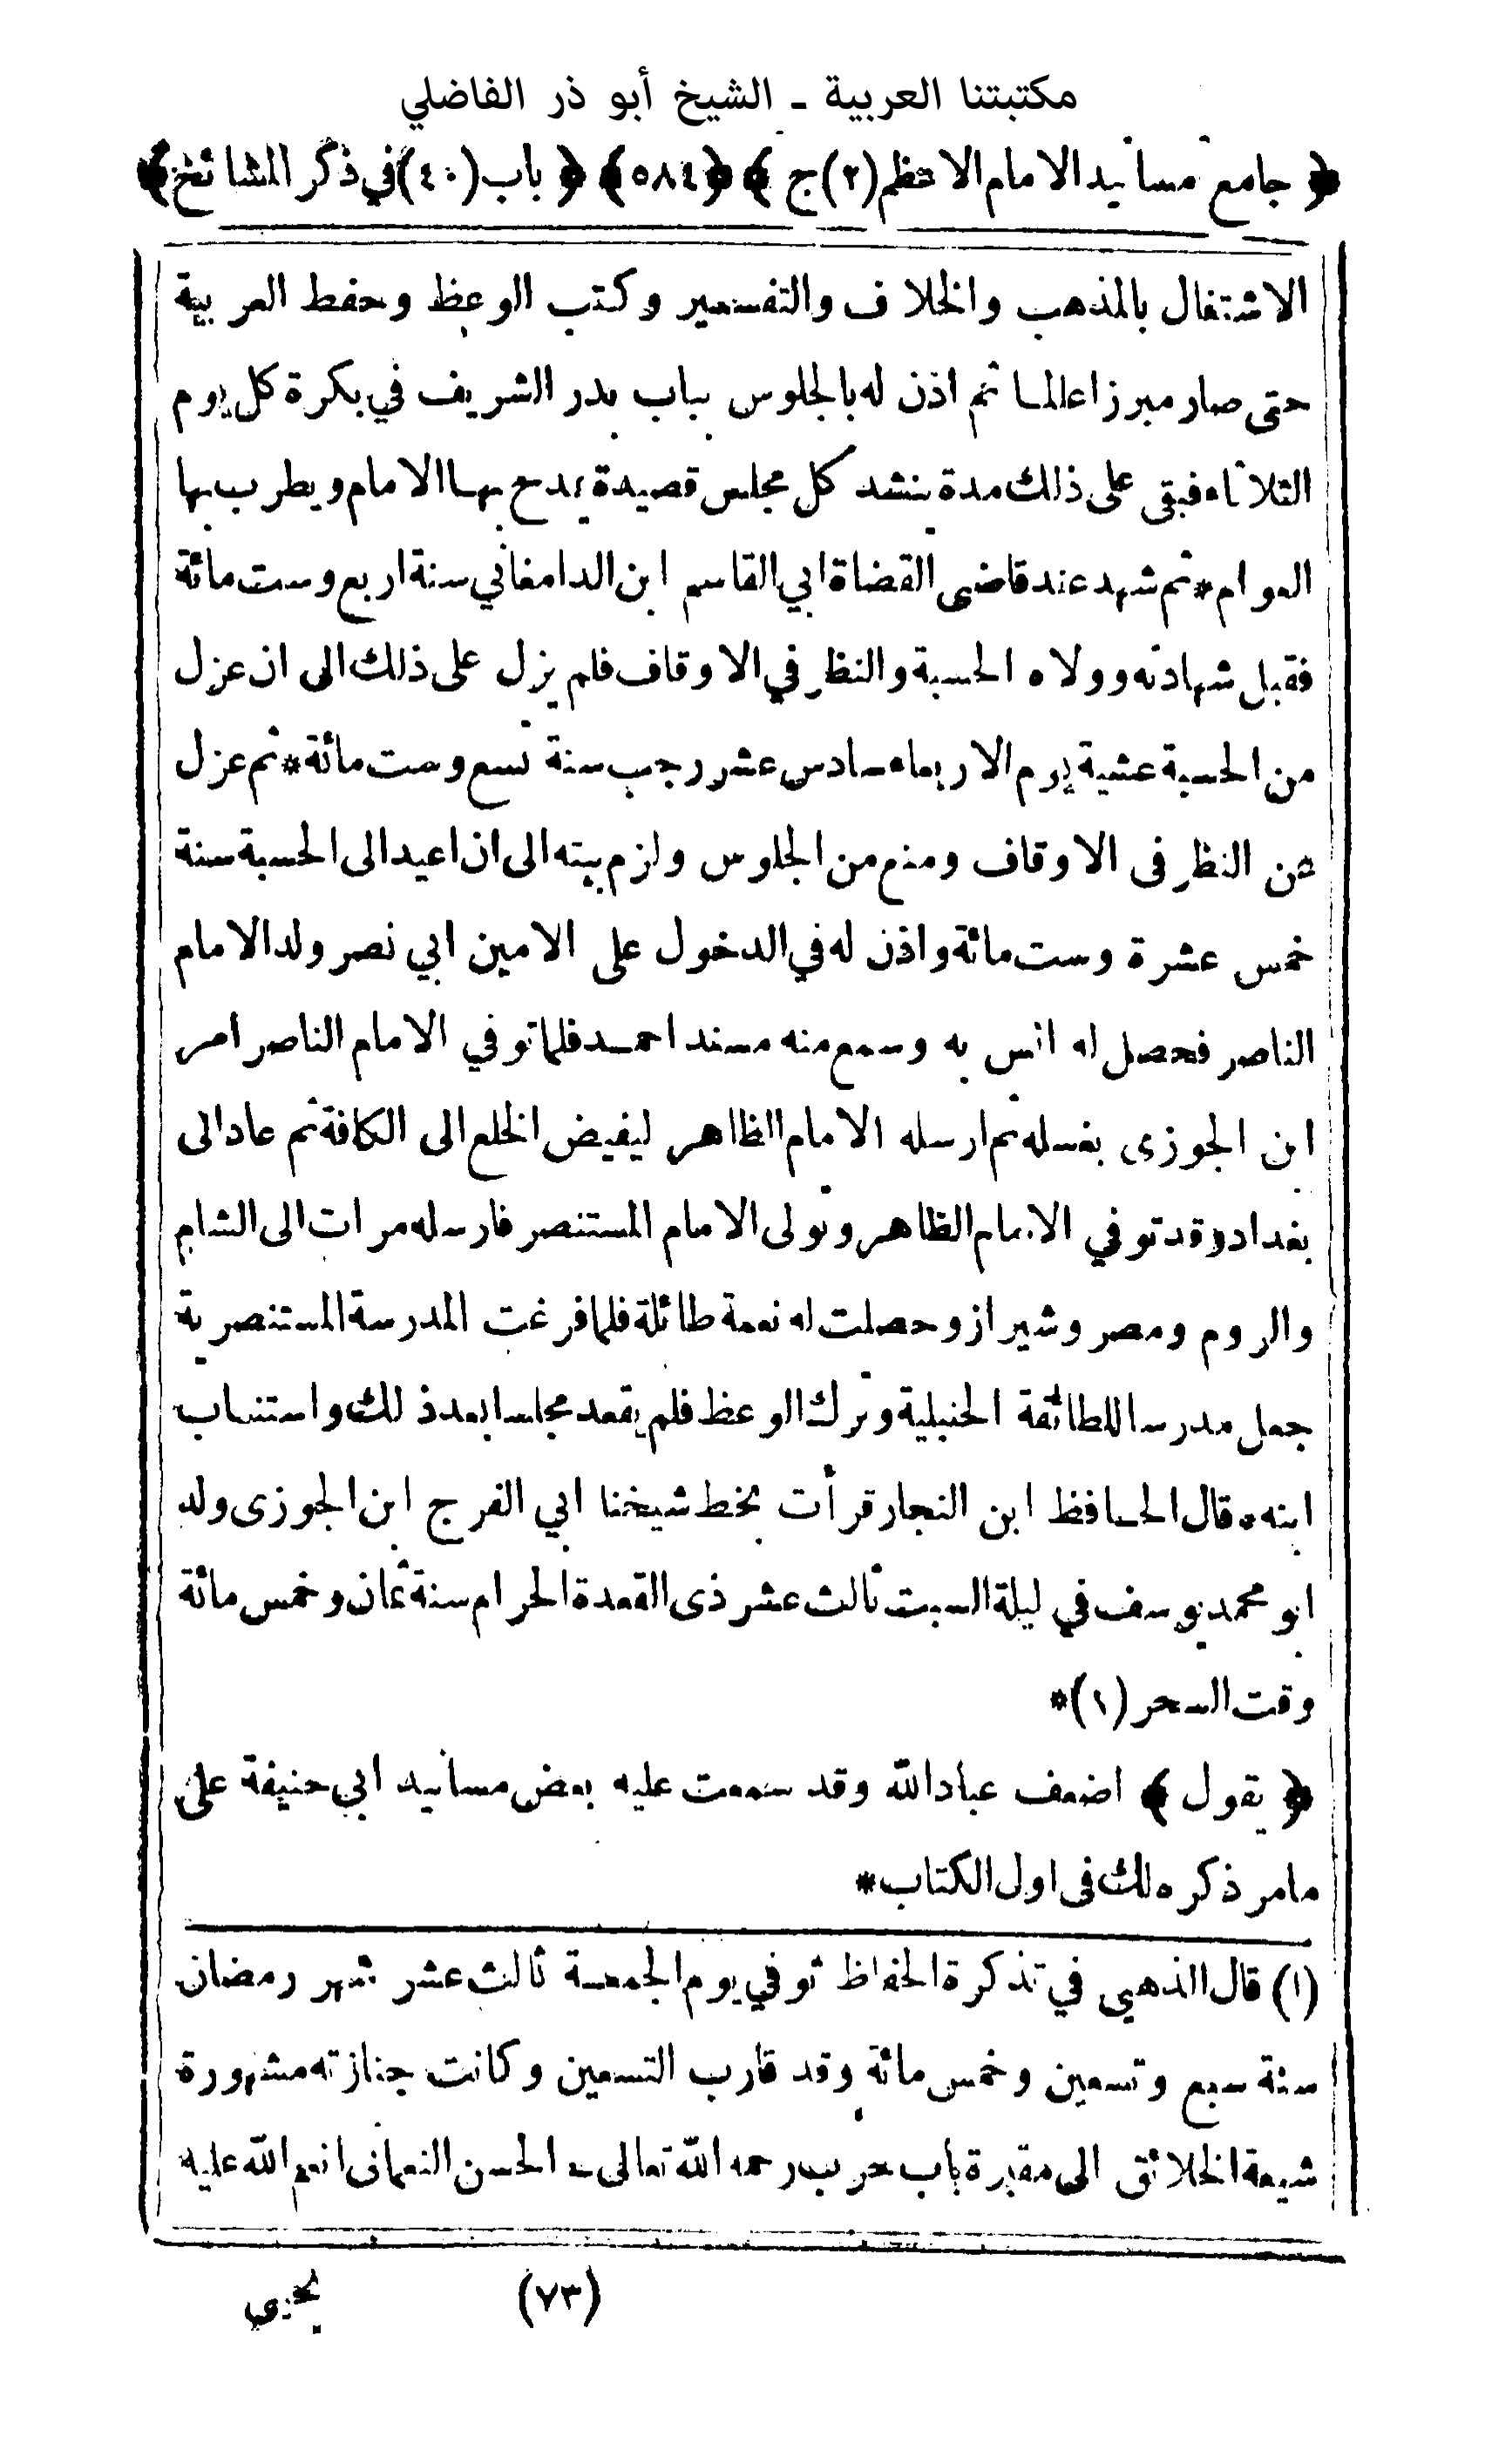 مكتبتنا العربية ـ الشيخ أبو ذر الفاضلي
﴿ جامع مسانيد الامام الاعظم (٢) ج ﴾ ﴿ ٥٨٤ ﴾ ﴿ باب (٤٠) في ذكر المشائخ ﴾
الاشتغال بالمذهب والخلاف والتفسير وكتب الوعظ وحفظ العربية
حتى صار مبرزا عالما ثم اذن له بالجلوس بباب بدر الشريف في بكرة كل يوم
الثلاثاء فبقى على ذلك مدة ينشد كل مجلس قصيدة يمدح بها الامام ويطرب بها
العوام * ثم شهد عند قاضى القضاة ابي القاسم ابن الدامغاني سنة اربع وست مائة
فقبل شهادته وولاه الحسبة والنظر في الاوقاف فلم يزل على ذلك الى ان عزل
من الحسبة عشية يوم الاربعاء سادس عشر رجب سنة تسع وست مائة * ثم عزل
عن النظر فى الاوقاف ومنع من الجلوس ولزم بيته الى ان اعيد الى الحسبة سنة
خمس عشرة وست مائة واذن له في الدخول على الامين ابي نصر ولد الامام
الناصر فحصل له انس به وسمع منه مسند احمد فلما توفي الامام الناصر امر
ابن الجوزى بغسله ثم ارسله الامام الظاهر ليفيض الخلع الى الكافة ثم عاد الى
بغداد وقد توفي الامام الظاهر وتولى الامام المستنصر فارسله مرات الى الشام
والروم ومصر وشيراز وحصلت له نعمة طائلة فلما فرغت المدرسة المستنصرية
جعل مدرسا للطائفة الحنبلية وترك الوعظ فلم يقعد مجلسا بعد ذلك واستناب
ابنه * قال الحافظ ابن النجار قرأت بخط شيخنا ابي الفرج ابن الجوزى ولد
ابو محمد يوسف في ليلة السبت ثالث عشر ذى القعدة الحرام سنة ثمان وخمس مائة
وقت السحر (١) *
﴿ يقول ﴾ اضعف عباد الله وقد سمعت عليه بعض مسانيد ابي حنيفة على
مامر ذكره لك فى اول الكتاب *
(١) قال الذهبي في تذكرة الحفاظ توفي يوم الجمعة ثالث عشر شهر رمضان
سنة سبع وتسعين وخمس مائة وقد قارب التسعين وكانت جنازته مشهورة
شيعة الخلائق الى مقبرة باب حرب رحمه الله تعالى ـ الحسن النعمانى انعم الله عليه
(٧٣)